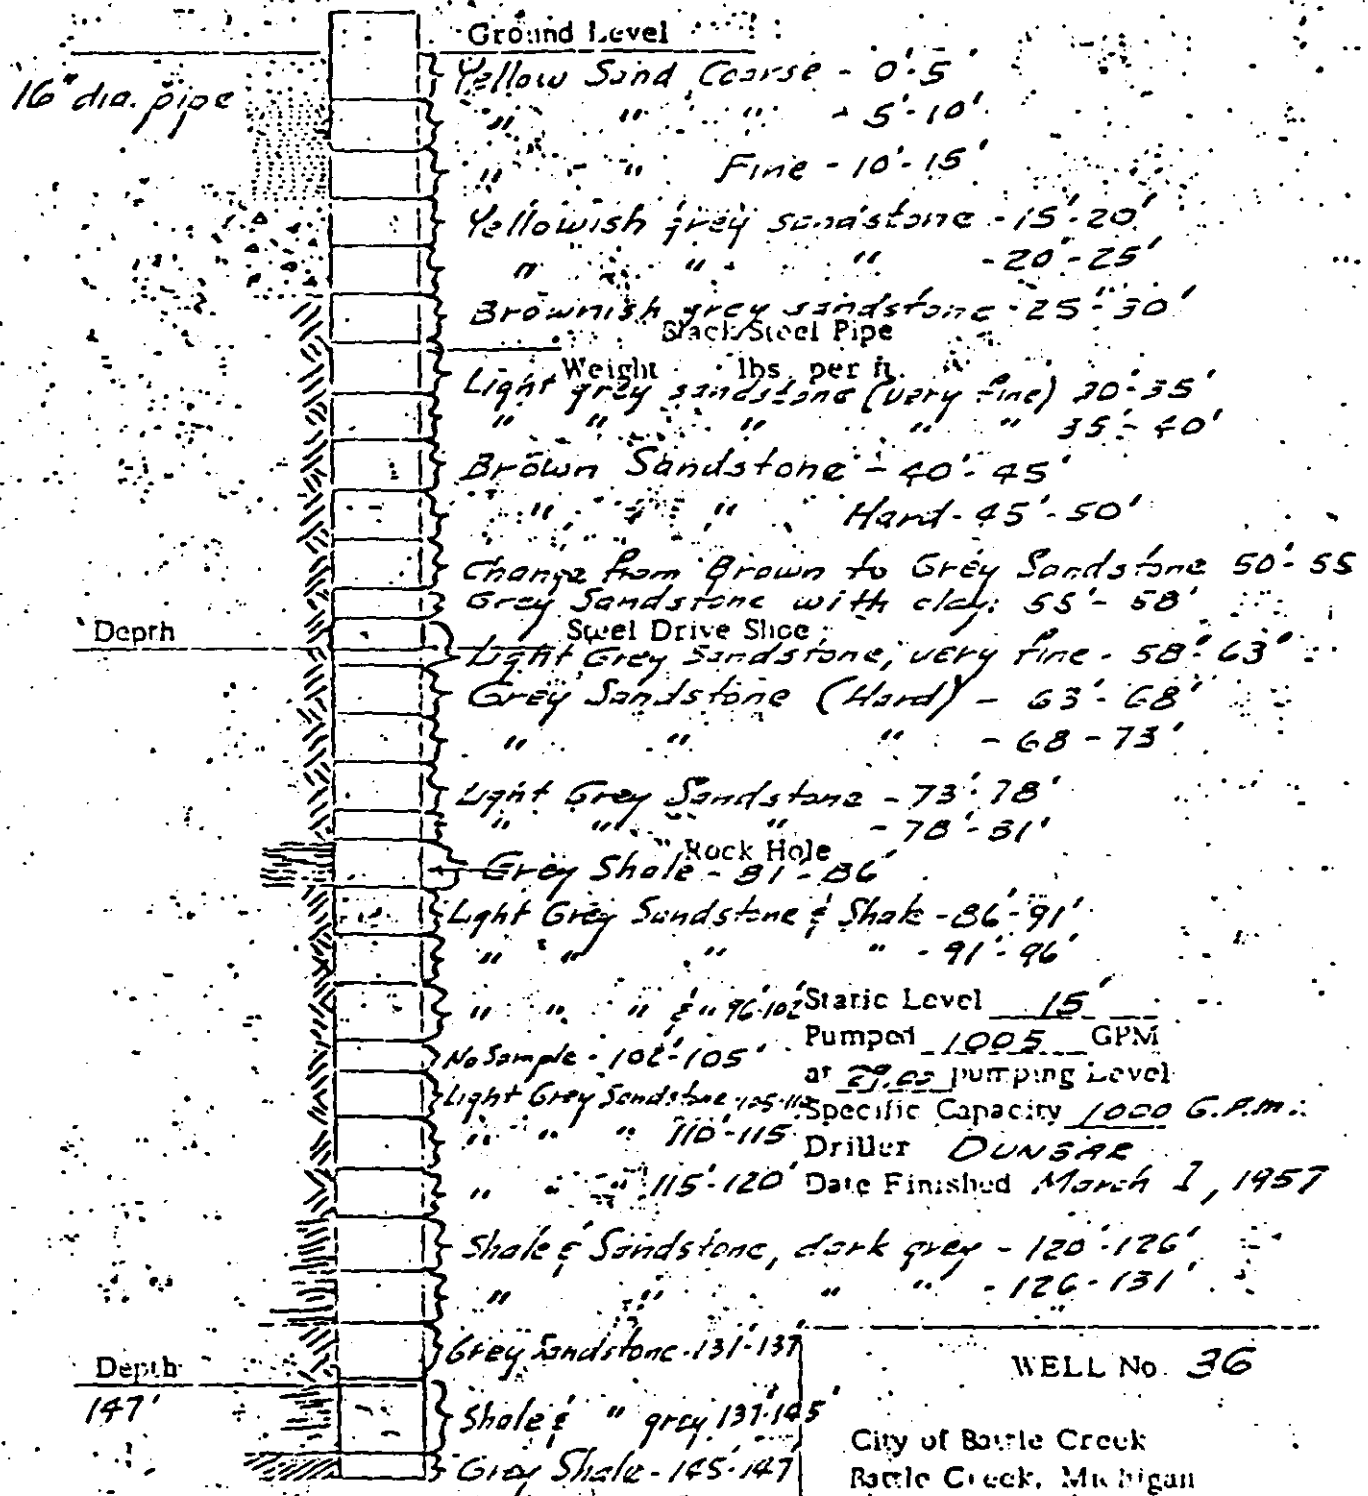 Ground Level
16" dia. pipe
Yellow Sand Coarse - 0'-5'
" " " - 5'-10'
" " Fine - 10'-15'
Yellowish grey sandstone - 15'-20'
" " " - 20'-25'
Brownish grey sandstone - 25'-30'
Black Steel Pipe
Weight lbs. per ft.
Light grey sandstone (very fine) 30'-35'
" " " " " 35'-40'
Brown Sandstone - 40'-45'
" " Hard - 45'-50'
Change from Brown to Grey Sandstone 50'-55
Grey Sandstone with clay: 55'-58'
Depth
Steel Drive Shoe
Light Grey Sandstone, very fine - 58'-63'
Grey Sandstone (Hard) - 63'-68'
" " " - 68-73'
Light Grey Sandstone - 73'-78'
" " " - 78'-81'
Rock Hole
Grey Shale - 81'-86'
Light Grey Sandstone & Shale - 86'-91'
" " " " - 91'-96'
" " " & " 96'-102'
Static Level 15'
Pumped 1005 GPM
No Sample - 102'-105'
at pumping Level
Light Grey Sandstone - 105-110
Specific Capacity 1000 G.P.M.
" " " 110'-115
Driller DUNBAR
" " " 115'-120'
Date Finished March 1, 1957
Shale & Sandstone, dark grey - 120'-126'
" " " " - 126-131'
Grey Sandstone - 131'-137'
WELL No. 36
Depth
147'
Shale & " grey 137'-145'
City of Battle Creek
Grey Shale - 145'-147'
Battle Creek, Michigan